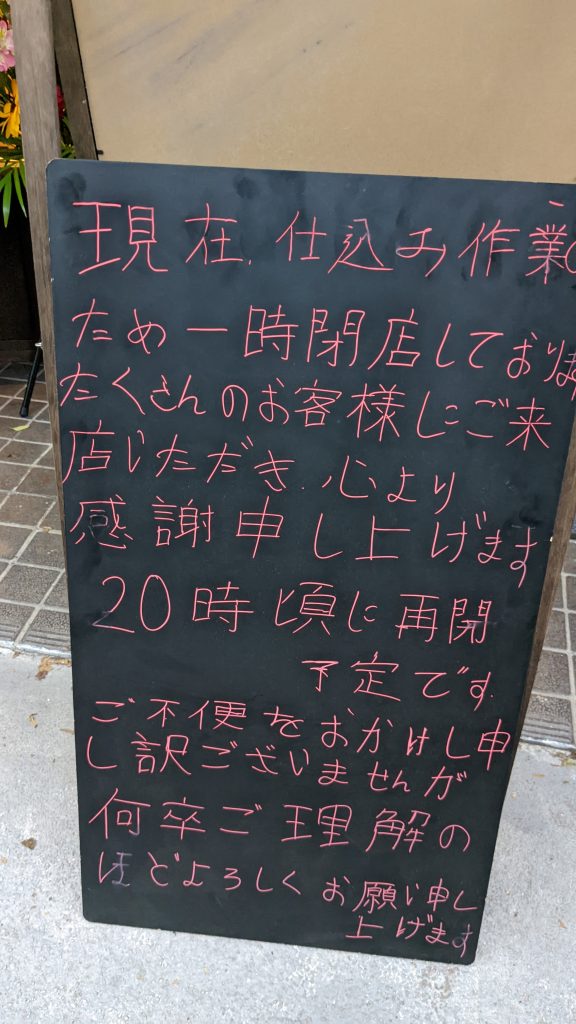 現在、仕込み作業の
ため一時閉店しておりま
たくさんのお客様にご来
店いただき、心より
感謝申し上げます
20時頃に再開
予定です
ご不便をおかけし申
し訳ございませんが
何卒ご理解の
ほどよろしく お願い申し
上げます